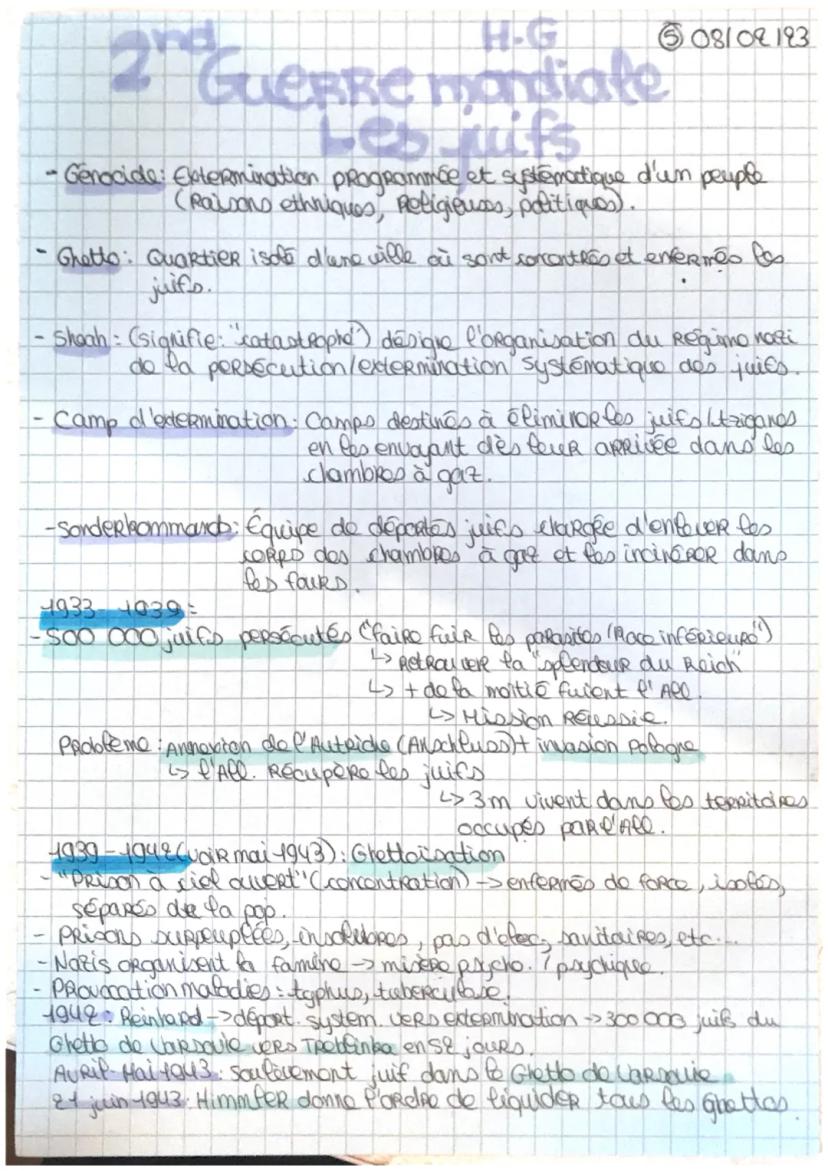 H-G ⑤ 08/02/23
2nd Guerre mondiale
Les juifs
- Génocide: Extermination programmée et systématique d'un peuple
(Raisons ethniques, Religieuses, politiques).
- Ghetto: Quartier isolé d'une ville où sont concentrés et enfermés les
juifs.
- Shoah: (signifie: "catastrophe") désigne l'organisation du Régime nazi
de la persécution/extermination systématique des juifs.
- Camp d'extermination: Camps destinés à éliminer les juifs/tziganes
en les envoyant dès leur arrivée dans les
chambres à gaz.
- Sonderkommando: Équipe de déportés juifs chargée d'enlever les
corps des chambres à gaz et les incinérer dans
les fours.
1933-1939:
- 500 000 juifs persécutés ("faire fuir les parasites (Race inférieure")
↳ Retrouver la "splendeur du Reich"
↳ + de la moitié fuient l'All.
↳ Mission Réussie.
Problème: Annexion de l'Autriche (Anschluss) + invasion Pologne
↳ l'All. Récupère les juifs
↳ 3m vivent dans les territoires
occupés par l'All.
1939-1942 (voir mai 1943): Ghettoisation
- "Prison à ciel ouvert" (concentration) → enfermés de force, isolés,
séparés de la pop.
- Prisons surpeuplées, insalubres, pas d'elec, sanitaires, etc...
- Nazis organisent la famine → misère psycho. / psychique.
- Provocation maladies: typhus, tuberculose.
1942: Reinhard → déport. system. vers extermination → 300 000 juifs du
Ghetto de Varsovie vers Treblinka en 52 jours.
Avril-Mai 1943: soulèvement juif dans le Ghetto de Varsovie
21 juin 1943: Himmler donne l'ordre de liquider tous les ghettos.